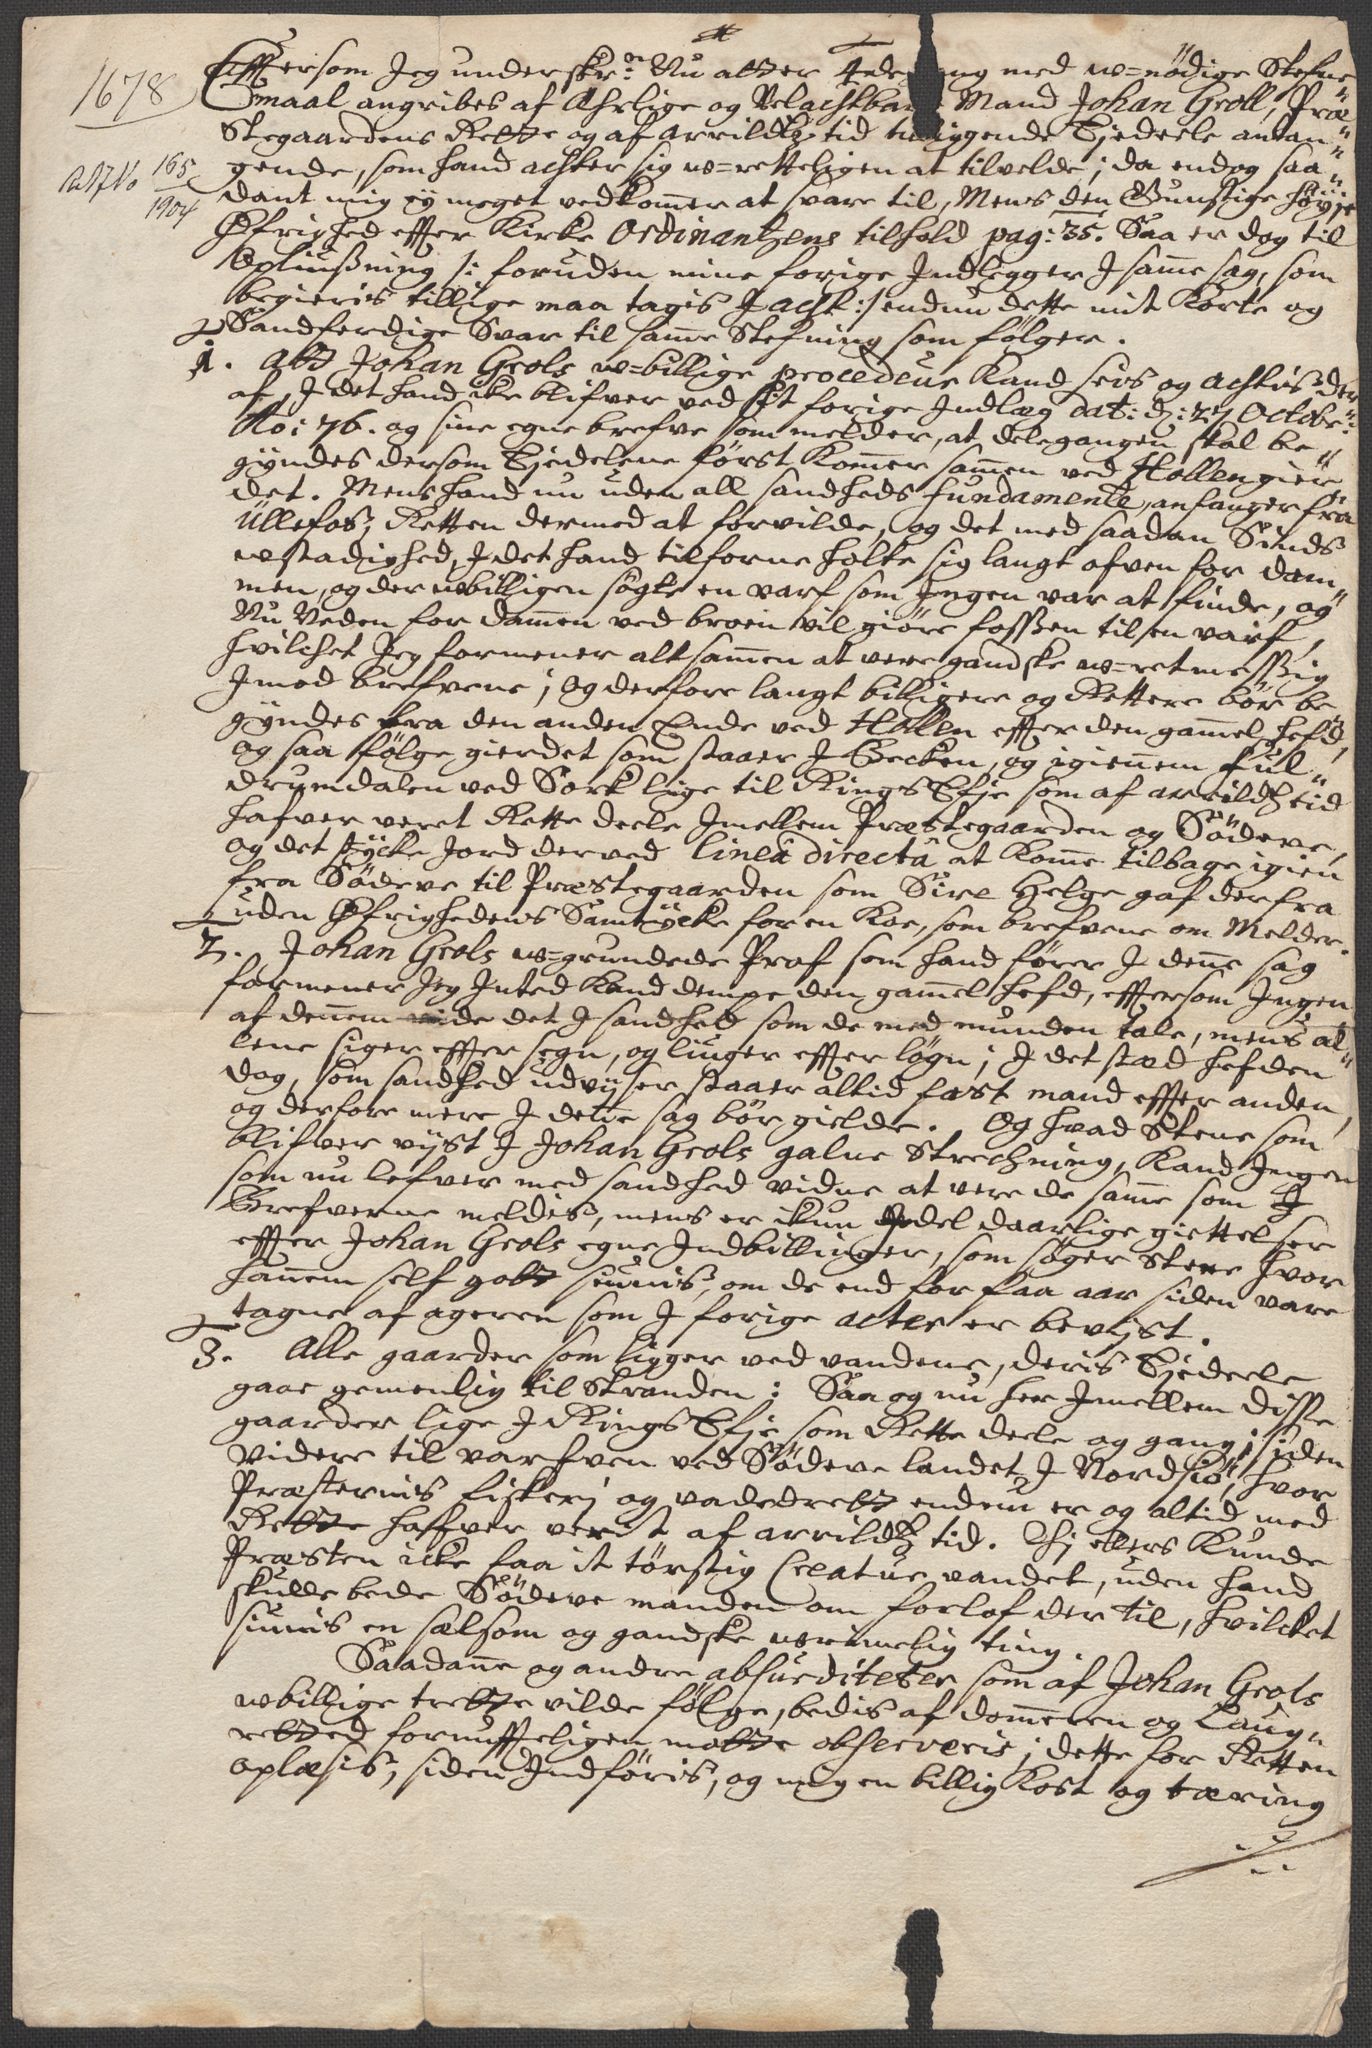 1678
RA J.No 165/1904
Effersom Jeg underskr: Nu atter 4de gang med u=nödige Stefne
maal angribes af Ehrlige og Velachtbare Mand Johan Groll, Præ
Stegaardens Rette og af arrildtz tid tilliggende Ejedeele anlan
gende, som hand achter sig u=rettelig en at tilvelde; da endog saa
dant mig ej meget vedkommer at svare til, Mens den Gunstige Höye
Öfrighed effter Kirke Ordinantzens tilhold pag: 35. Saa er dog til
Oplinsßning /: foruden mine forige Indlegger J samme sag, som
begieris tillige maa tagis J acht :/ endnu dette mit Korte og
Sandferdige Svar til samme Stefning som følger.
1. Att Johan Grols u=billige procedeur Kand seis og achtis der
af, J det hand icke blifver ved sit forige Indlæg dat: d: 27 Octobr:
No: 76. og sine egne brefve som melder, at delegangen skal be
gyndes dersom Ejedelene först Kommer sammen ved Hollengier
det. Mens hand nu uden all sandheds fundamente, anfanger fra
Ullefos, Retten dermed at forvilde, og det med saadan Sinds
ustadighed, J det hand tilforne holte sig langt ofven for dam
men, og der ubilligen sögte en varf som Jngen var at finde, og
Nu Neden for dammen ved broen vil giöre fossen til en varf,
hvilchet Jeg formener altsammen at vere gandske u=retmessig
Jmod brefvene; og derfore langt billigere og Rettere bör be
gyndes fra den anden Ende ved Hollen effter den gammel hefd,
og saa fölge gierdet som staaer J Becken, og igiennem Ful
drumdalen ved Sork lige til Rings Efje som af arrildtz tid
hafver veret Rette deele Jmellem Præstegaarden og Södeve,
og det stycke Jord derved lineâ directâ at Komme tilbage igien
fra Södeve til Præstegaarden som Sire Helge gaf derfra
uden Öfrighedens Samtycke for en Koe, som brefvene om Melder.
2. Johan Grols u=grundede Prof som hand förer J denne sag
formener Jeg Jnted Kand dempe den gammel hefd, effersom Jngen
af dennem vide det J sandhed som de med munden tale, mens al
lene siger effter sogn, og liuger effter løgn; J det sted hefden
dog, som sandhed udvijser staaer altid fast mand effter anden,
og derfore mere J dette sag bör gielde. Og hvad Stene som
blifver vijst J Johan Grols galne Strechning, Kand Jngen
som nu lefver med sandhed vidne at vere de samme som J
Brefverne meldis, mens er ikun Jdel daarlige giettelser
effter Johan Grols egne Jndbillinger, som söger Stene hvor
hannem self gott siunis, om de end for faa aar siden vare
tagne af ageren som J forige acter er bevijst.
3. Alle gaarder som ligger ved vandene, deris Ejedeele
gaae gemenlig til Stranden: Saa og nu her Jmellem disse
gaarder lige J Rings Efje som Rette deele og gang; siden
videre til varhven ved Södeve landet J Nordsiö, hvor
Præsternis fiskerj og vadedrett endnu er og altid med
Rette hafver verit af arrildtz tid. Ej ellers Kunde
Præsten icke faa it törstig Creatur vandet, uden hand
skulle bede Södeve manden om forlof der til, hvilcket
siunis en selsom og gandske urimelig ting.
Saadanne og andre absurditeter som af Johan Grols
ubillige trette vilde fölge, bedis af dommeren og Laug
retted fornufteligen motte observeris; dette for Retten
oplæsis, siden Jndföris, og mig en billig Kost og tæring